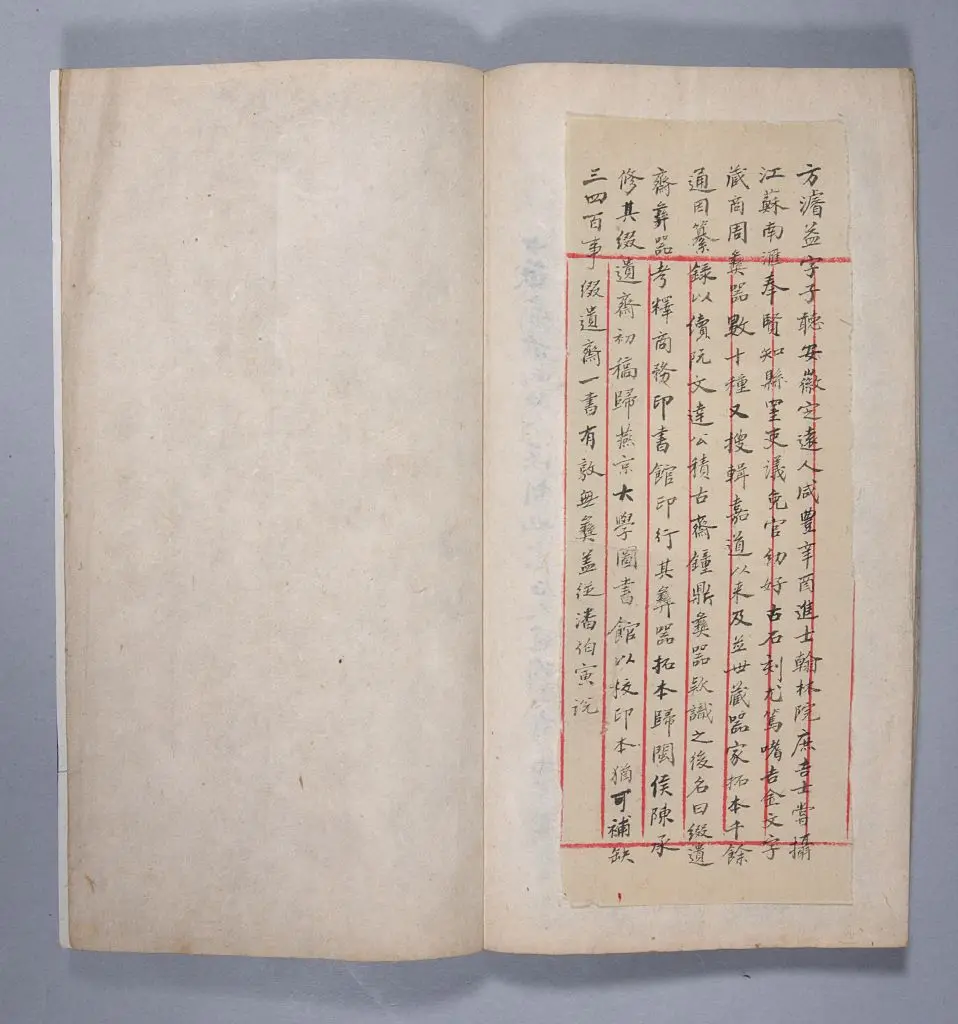 方濬益字子聽安徽定遠人咸豐辛酉進士翰林院庶吉士嘗攝
江蘇南滙奉賢知縣罣吏議免官幼好古石刻尤篤嗜吉金文字
蔵商周彝器數十種又搜輯嘉道以来及並世蔵器家拓本千餘
通因纂錄以續阮文達公積古齋鐘鼎彝器欵識之後名曰綴遺
齋彝器考釋商務印書館印行其彝器拓本歸閩侯陳承
修其綴遺齋初稿歸燕京大學圖書館以校印本猶可補缺
三四百事綴遺齋一書有敦無彝盖從潘伯寅説